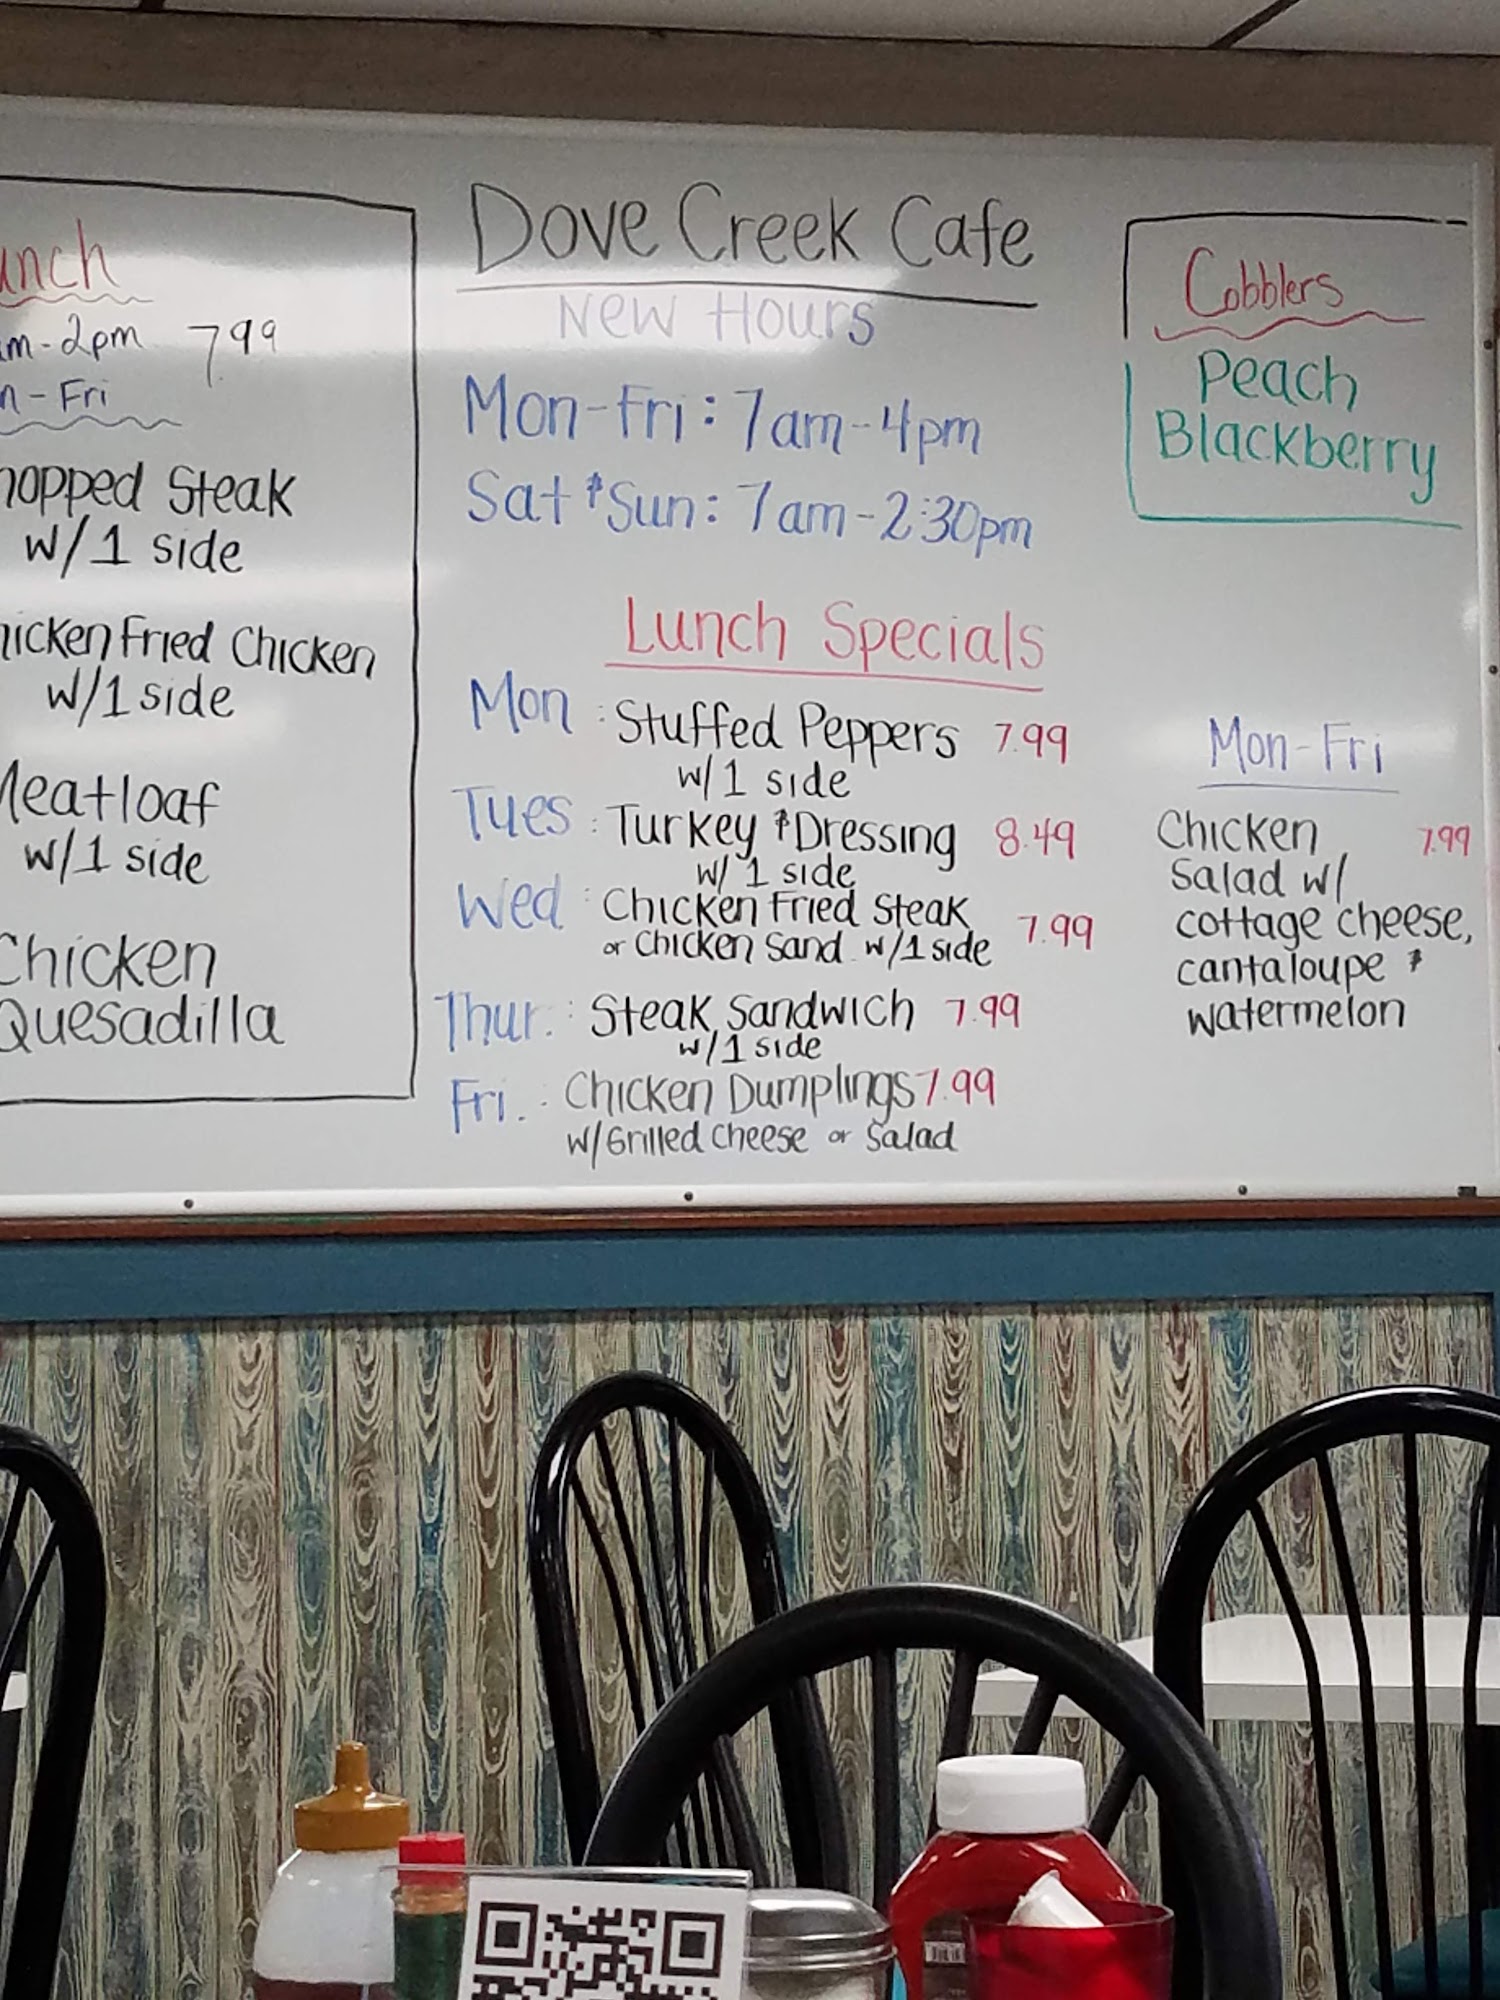 unch
m-2pm 7.99
n-Fri
hopped Steak
w/1 side
hicken Fried Chicken
w/1 side
Meatloaf
w/1 side
Chicken
Quesadilla
Dove Creek Cafe
New Hours
Mon-Fri: 7am-4pm
Sat & Sun: 7am-2:30pm
Lunch Specials
Mon : Stuffed Peppers 7.99
w/1 side
Tues : Turkey & Dressing 8.49
w/ 1 side
Wed : Chicken Fried Steak 7.99
or Chicken Sand w/1 side
Thur. : Steak Sandwich 7.99
w/1 side
Fri. : Chicken Dumplings 7.99
w/Grilled Cheese or Salad
Cobblers
Peach
Blackberry
Mon-Fri
Chicken 7.99
Salad w/
cottage cheese,
cantaloupe &
watermelon